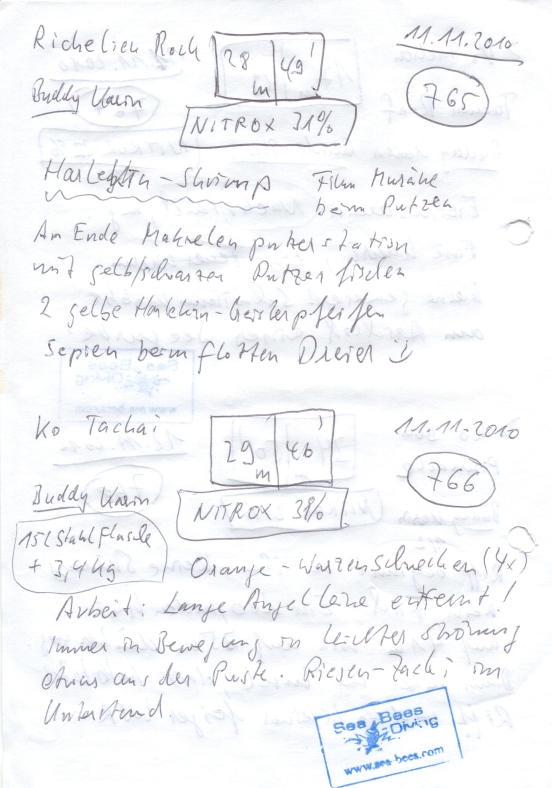 Richelieu Rock
28 m 49'
11.11.2010
Buddy Karin
765
NITROX 31%
Harlekin-Shrimp
Film Muräne
beim Putzen
Am Ende Makrelen putzerstation
mit gelb/schwarzen Putzerfischen
2 gelbe Harlekin-Geisterpfeifen
Sepien beim flotten Dreier
Ko Tachai
29 m 46'
11.11.2010
766
Buddy Karin
NITROX 31%
15l Stahlflasche
+ 3,4 kg
Orange-Warzenschnecken (4x)
Arbeit: Lange Angelleine entfernt!
Immer in Bewegung in leichter Strömung
etwas aus der Puste. Riesen-Zacki im
Unterstand.
Sea Bees
Diving
www.sea-bees.com